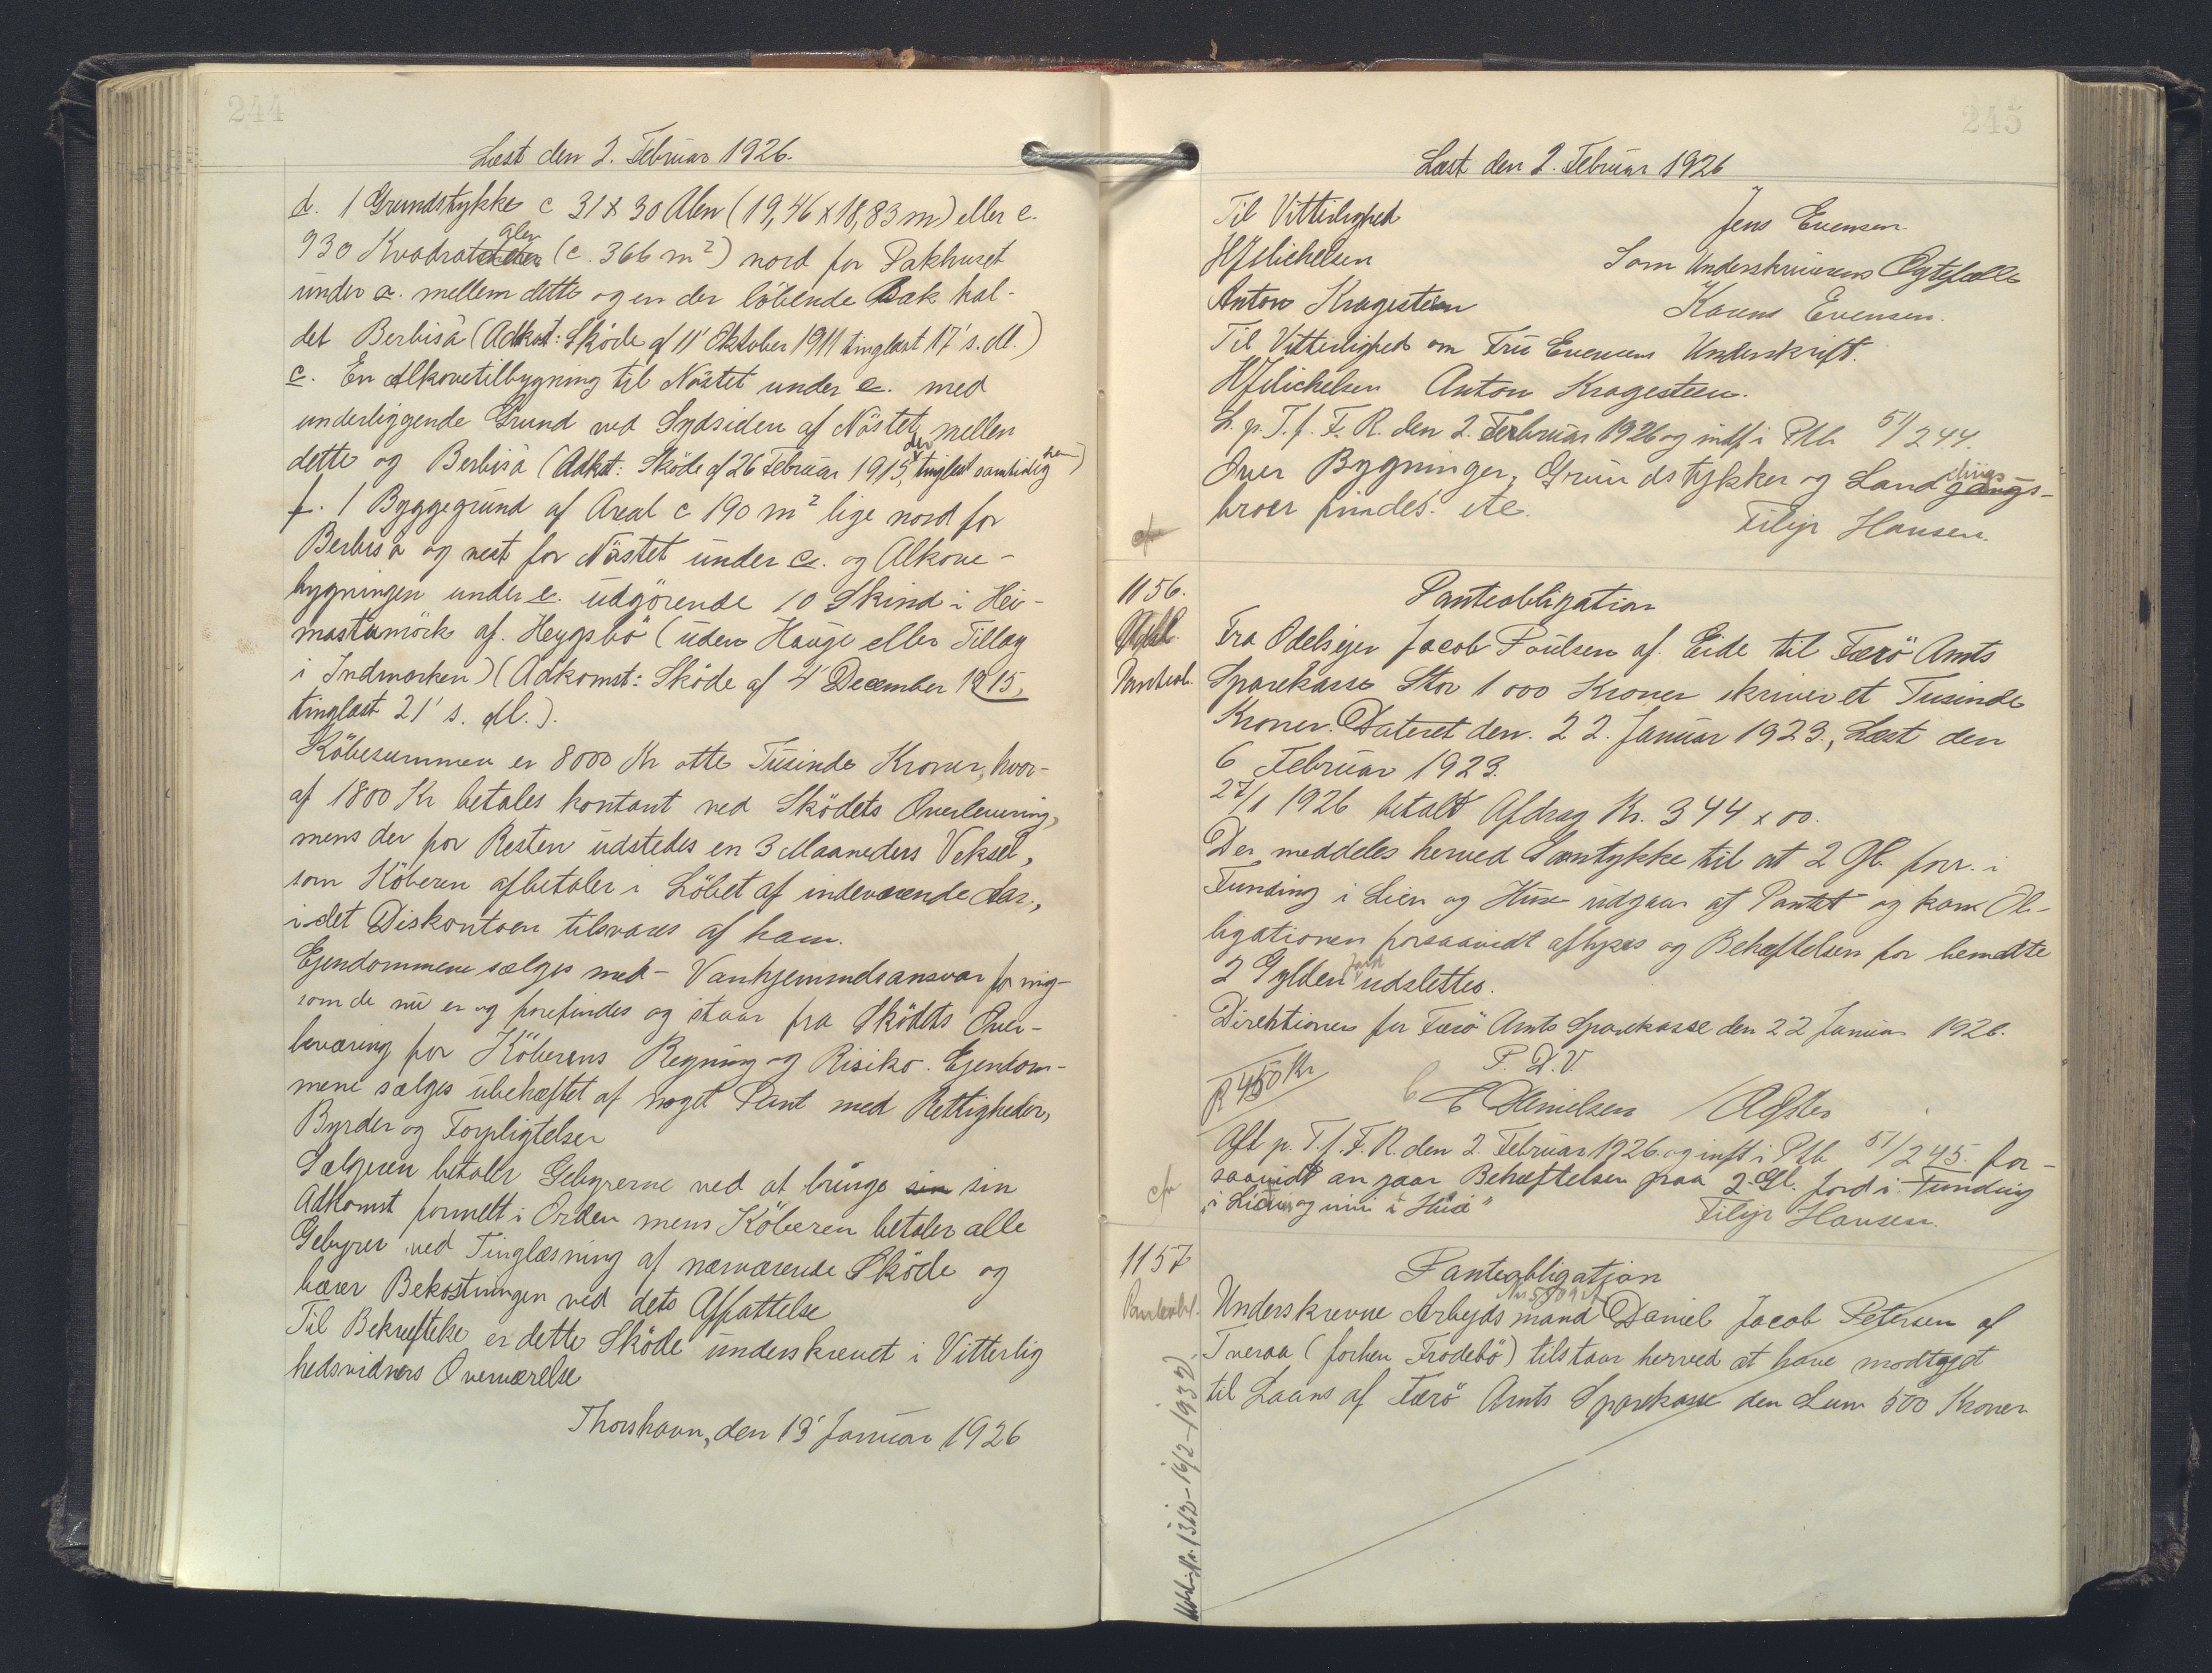 244
Læst den 2. Februar 1926.
d. 1 Grundstykke c 31 x 30 Alen (19,46 x 18,83 m) eller c.
930 Kvadratalen (c. 366 m²) nord for Pakhuset
under a. mellem dette og en der löbende Bæk kal-
det Berbisá (Adkst: Sköde af 11' Oktober 1911 tinglæst 17' s. M.)
e. En Alkovetilbygning til Nöstet under c. med
underliggende Grund ved Sydsiden af Nöstet mellem
dette og Berbisá (Adkst: Sköde af 26 Februar 1915, tinglæst samtidig
f. 1 Byggegrund af Areal c 190 m² lige nord for
Berbisá og vest for Nöstet under c. og Alkove-
bygningen under e. udgörende 10 Skind i Hei-
mastumörk af. Heygsbö (uden Hauge eller Tillag
i Indmarken) (Adkomst: Sköde af 4 December 1915,
tinglæst 21' s. M.).
Köbesummen er 8000 Kr otte Tusinde Kroner, hvor-
af 1800 Kr betales kontant ved Sködets Overlevering,
mens der for Resten udstedes en 3 Maaneders Veksel,
som Köberen afbetaler i Löbet af indeværende Aar.,
i det Diskontoen tilsvares af ham.
Ejendommene sælges med - Vanhjemmelsansvar for mig -
som de nu er og forefindes og staar fra Sködets Over-
leværing for Köberens Regning og Risiko. Ejendom-
mene sælges ubehæftet af noget Pant med Rettigheder,
Byrder og Forpligtelser
Sælgeren betaler Gebyrerne ved at bringe sin sin
Adkomst formelt i Orden mens Köberen betaler alle
Gebyrer ved Tinglæsning af nærværende Sköde og
bærer Bekostningen ved dets Affattelse
Til Bekræftelse er dette Sköde underskrevet i Vitterlig
hedsvidners Overværelse
Thorshavn, den 13' Januar 1926
245
Læst den 2. Februar 1926
Til Vitterlighed
Jens Evensen.
HJMichelsen
Som Underskriverens Ægtefælle
Anton Kragesteen
Evensen.
Til Vitterlighed om Fru Evensens Underskrift.
HJMichelsen Anton Kragesteen.
L. p. T. f. F. R. den 2. Februar 1926 og indf i Ptb 51/244.
Over Bygninger, Grundstykker og Landgangs-
broer findes. etc.
Filip Hansen.
1156.
Panteobligation
Fra Odelsejer Jacob Poulsen af. Eide til Færö Amts
Panteob. Sparekasse Stor 1000 Kroner skriver et Tusinde
Kroner. Dateret den. 22. Januar 1923., Læst den
6 Februar 1923.
27/1 1926 betalt Afdrag Kr. 344 x 00.
Der meddeles herved Samtykke til at 2 Gl. forr. i
Funding i Lien og Huse udgaar af Pantet og kan Ob-
ligationen forsaavidt aflyses og Behæftelsen for bemeldte
2 Gylden Jord udslettes.
Direktionen for Færö Amts Sparekasse den 22 Januar 1926.
P. D. V.
R 450 Kr
Danielsen
Aflt p. T. f. F. R. den 2. Februar 1926. og inft i Ptb 51/245. for-
saavidt an gaar Behæftelsen paa 2. Gl. Jord i Funding
Filip Hansen.
1157
Panteobligation
Panteobl. Underskrevne Arbejdsmand Daniel Jacob Petersen af
Tveraa (forhen Frodebö) tilstaar herved at have modtaget
til Laans af Færö Amts Sparekasse den Sum 500 Kroner